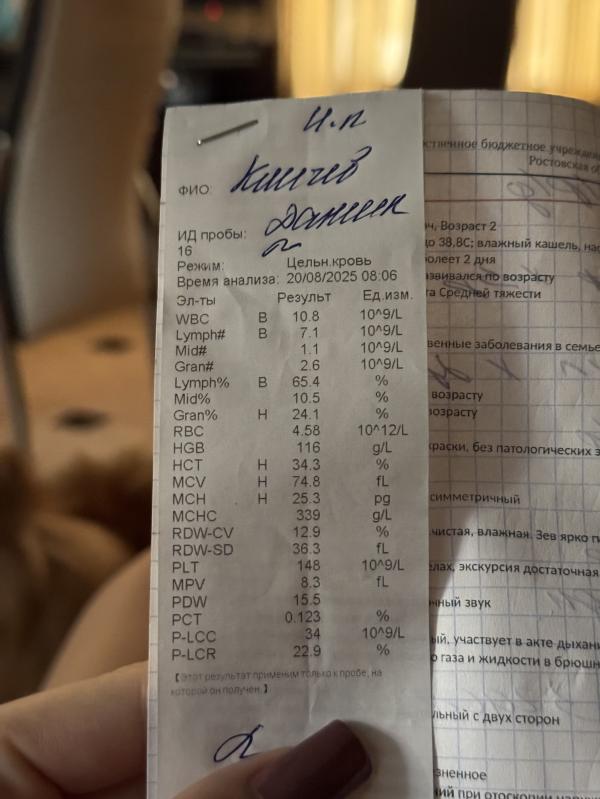 И.п
ФИО:
Даниил
ИД пробы:
16
Режим: Цельн.кровь
Время анализа: 20/08/2025 08:06
Эл-ты Результ Ед.изм.
WBC В 10.8 10^9/L
Lymph# В 7.1 10^9/L
Mid# 1.1 10^9/L
Gran# 2.6 10^9/L
Lymph% В 65.4 %
Mid% 10.5 %
Gran% Н 24.1 %
RBC 4.58 10^12/L
HGB 116 g/L
HCT Н 34.3 %
MCV Н 74.8 fL
MCH Н 25.3 pg
MCHC 339 g/L
RDW-CV 12.9 %
RDW-SD 36.3 fL
PLT 148 10^9/L
MPV 8.3 fL
PDW 15.5
PCT 0.123 %
P-LCC 34 10^9/L
P-LCR 22.9 %
【Этот результат применим только к пробе, на
которой он получен.】
ственное бюджетное учрежден
Ростовская о
ч, Возраст 2
до 38,8С; влажный кашель, нас
болеет 2 дня
азвивался по возрасту
та Средней тяжести
венные заболевания в семье
возрасту
возрасту
краски, без патологических э
симметричный
чистая, влажная. Зев ярко ги
елах, экскурсия достаточная
чный звук
ый, участвует в акте дыхани
о газа и жидкости в брюшн
льный с двух сторон
зненное
ний при отоскопии